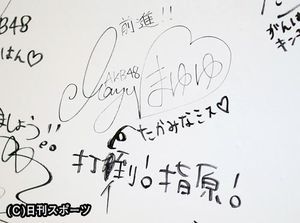 前進!!
KB48
はん♡
がんば
キン
AKB48
Mayu
まゆゆ
ましょう!!
たかみなミス♡
打倒!指原!
(C)日刊スポーツ